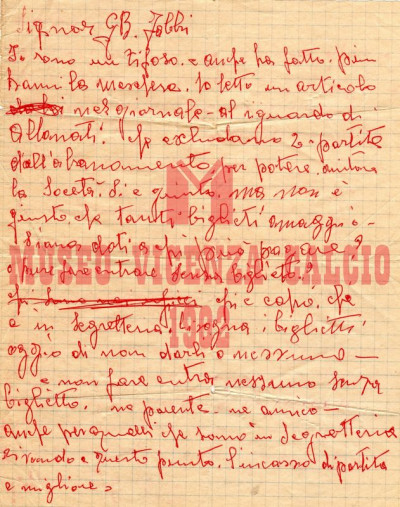 Signor GB. Fabbri
Io sono un tifoso. e anche ha fatto. piu
hanni la maschera. Io letto un articolo
nel giornale - al riguardo di
Abbonati. che escludano 2. partita
dall'abbonamento per potere. aiutare
la Società. Si e giusto, ma non è
giusto che tanti biglietti omaggio -
siano dati a chi può pagare?
o pure fare entrare senza biglietto?
chi e capo, che
e in Segretteria bisogna i biglietti
oggio di non darli a nessuno -
e non fare entrar nessuno senza
biglietto. ne parente. ne amico -
anche per quelli che sono in Segretteria
a questo punto. l'incasso di partita
e migliore.
MUSEO VICENZA CALCIO
1902